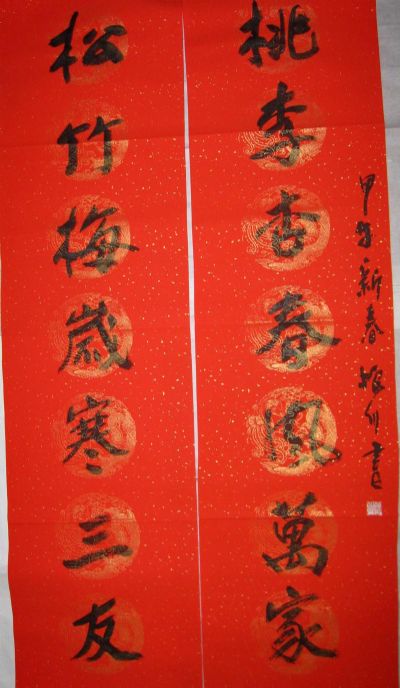 甲午新春
桃李杏春风萬家
松竹梅歲寒三友